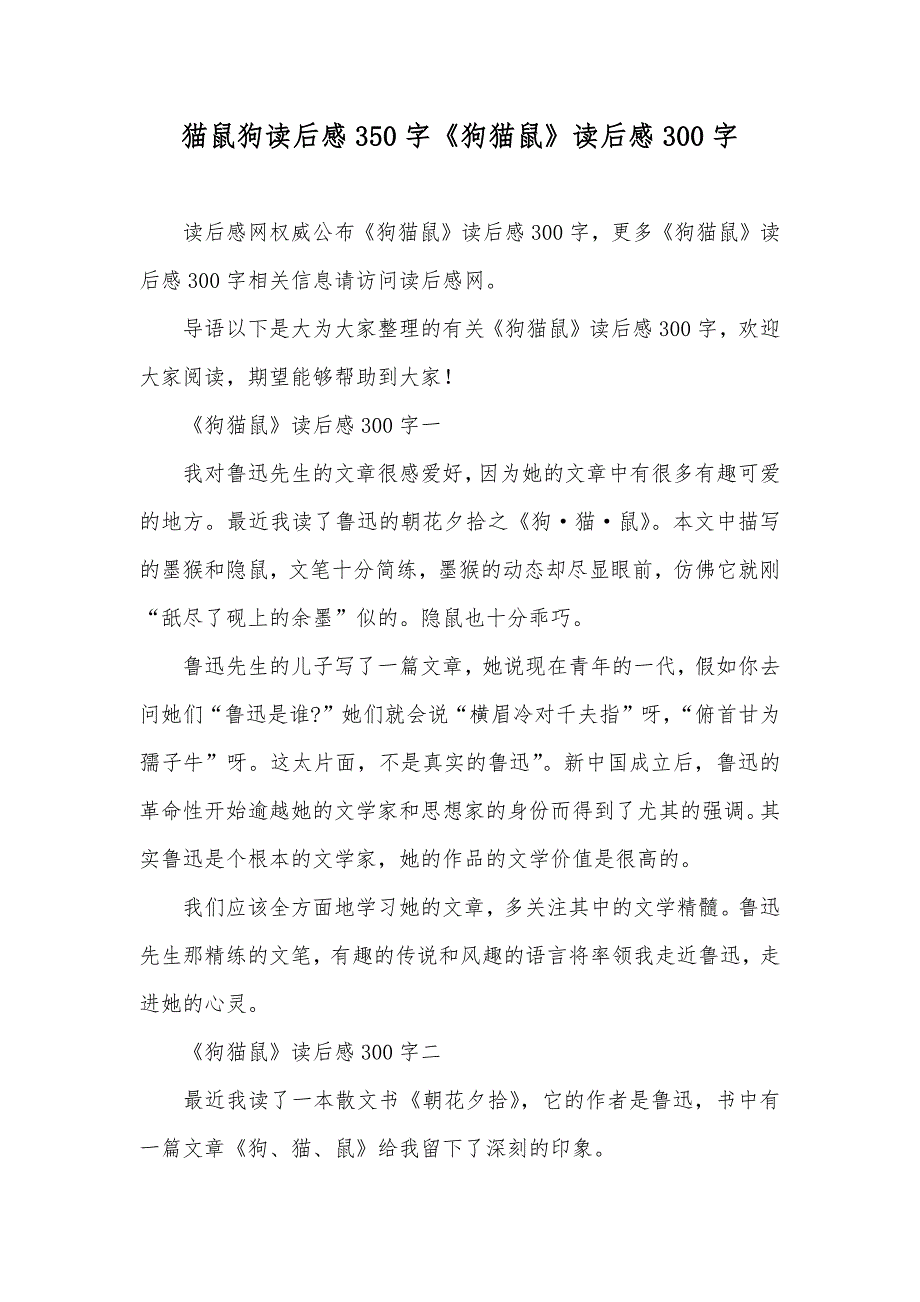 猫鼠狗读后感 350 字《狗猫鼠》读后感 300 字
读后感网权威公布《狗猫鼠》读后感 300 字，更多《狗猫鼠》读
后感 300 字相关信息请访问读后感网。
导语以下是大为大家整理的有关《狗猫鼠》读后感 300 字，欢迎
大家阅读，期望能够帮助到大家！
《狗猫鼠》读后感 300 字一
我对鲁迅先生的文章很感爱好，因为她的文章中有很多有趣可爱
的地方。最近我读了鲁迅的朝花夕拾之《狗·猫·鼠》。本文中描写
的墨猴和隐鼠，文笔十分简练，墨猴的动态却尽显眼前，仿佛它就刚
“舐尽了砚上的余墨”似的。隐鼠也十分乖巧。
鲁迅先生的儿子写了一篇文章，她说现在青年的一代，假如你去
问她们“鲁迅是谁?”她们就会说“横眉冷对千夫指”呀，“俯首甘为
孺子牛”呀。这太片面，不是真实的鲁迅”。新中国成立后，鲁迅的
革命性开始逾越她的文学家和思想家的身份而得到了尤其的强调。其
实鲁迅是个根本的文学家，她的作品的文学价值是很高的。
我们应该全方面地学习她的文章，多关注其中的文学精髓。鲁迅
先生那精练的文笔，有趣的传说和风趣的语言将率领我走近鲁迅，走
进她的心灵。
《狗猫鼠》读后感 300 字二
最近我读了一本散文书《朝花夕拾》，它的作者是鲁迅，书中有
一篇文章《狗、猫、鼠》给我留下了深刻的印象。